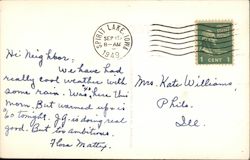 SPIRIT LAKE, IOWA
SEP
8-AM
1949
1 CENT 1
Hi Neighbor:
We have had
really cool weather with
some rain. Was here this
morn. But warmed up is
60 tonight. J.G. is doing real
good. But too ambitious.
Flora Mattey.
Mrs. Kate Williams,
Philo.
Ill.